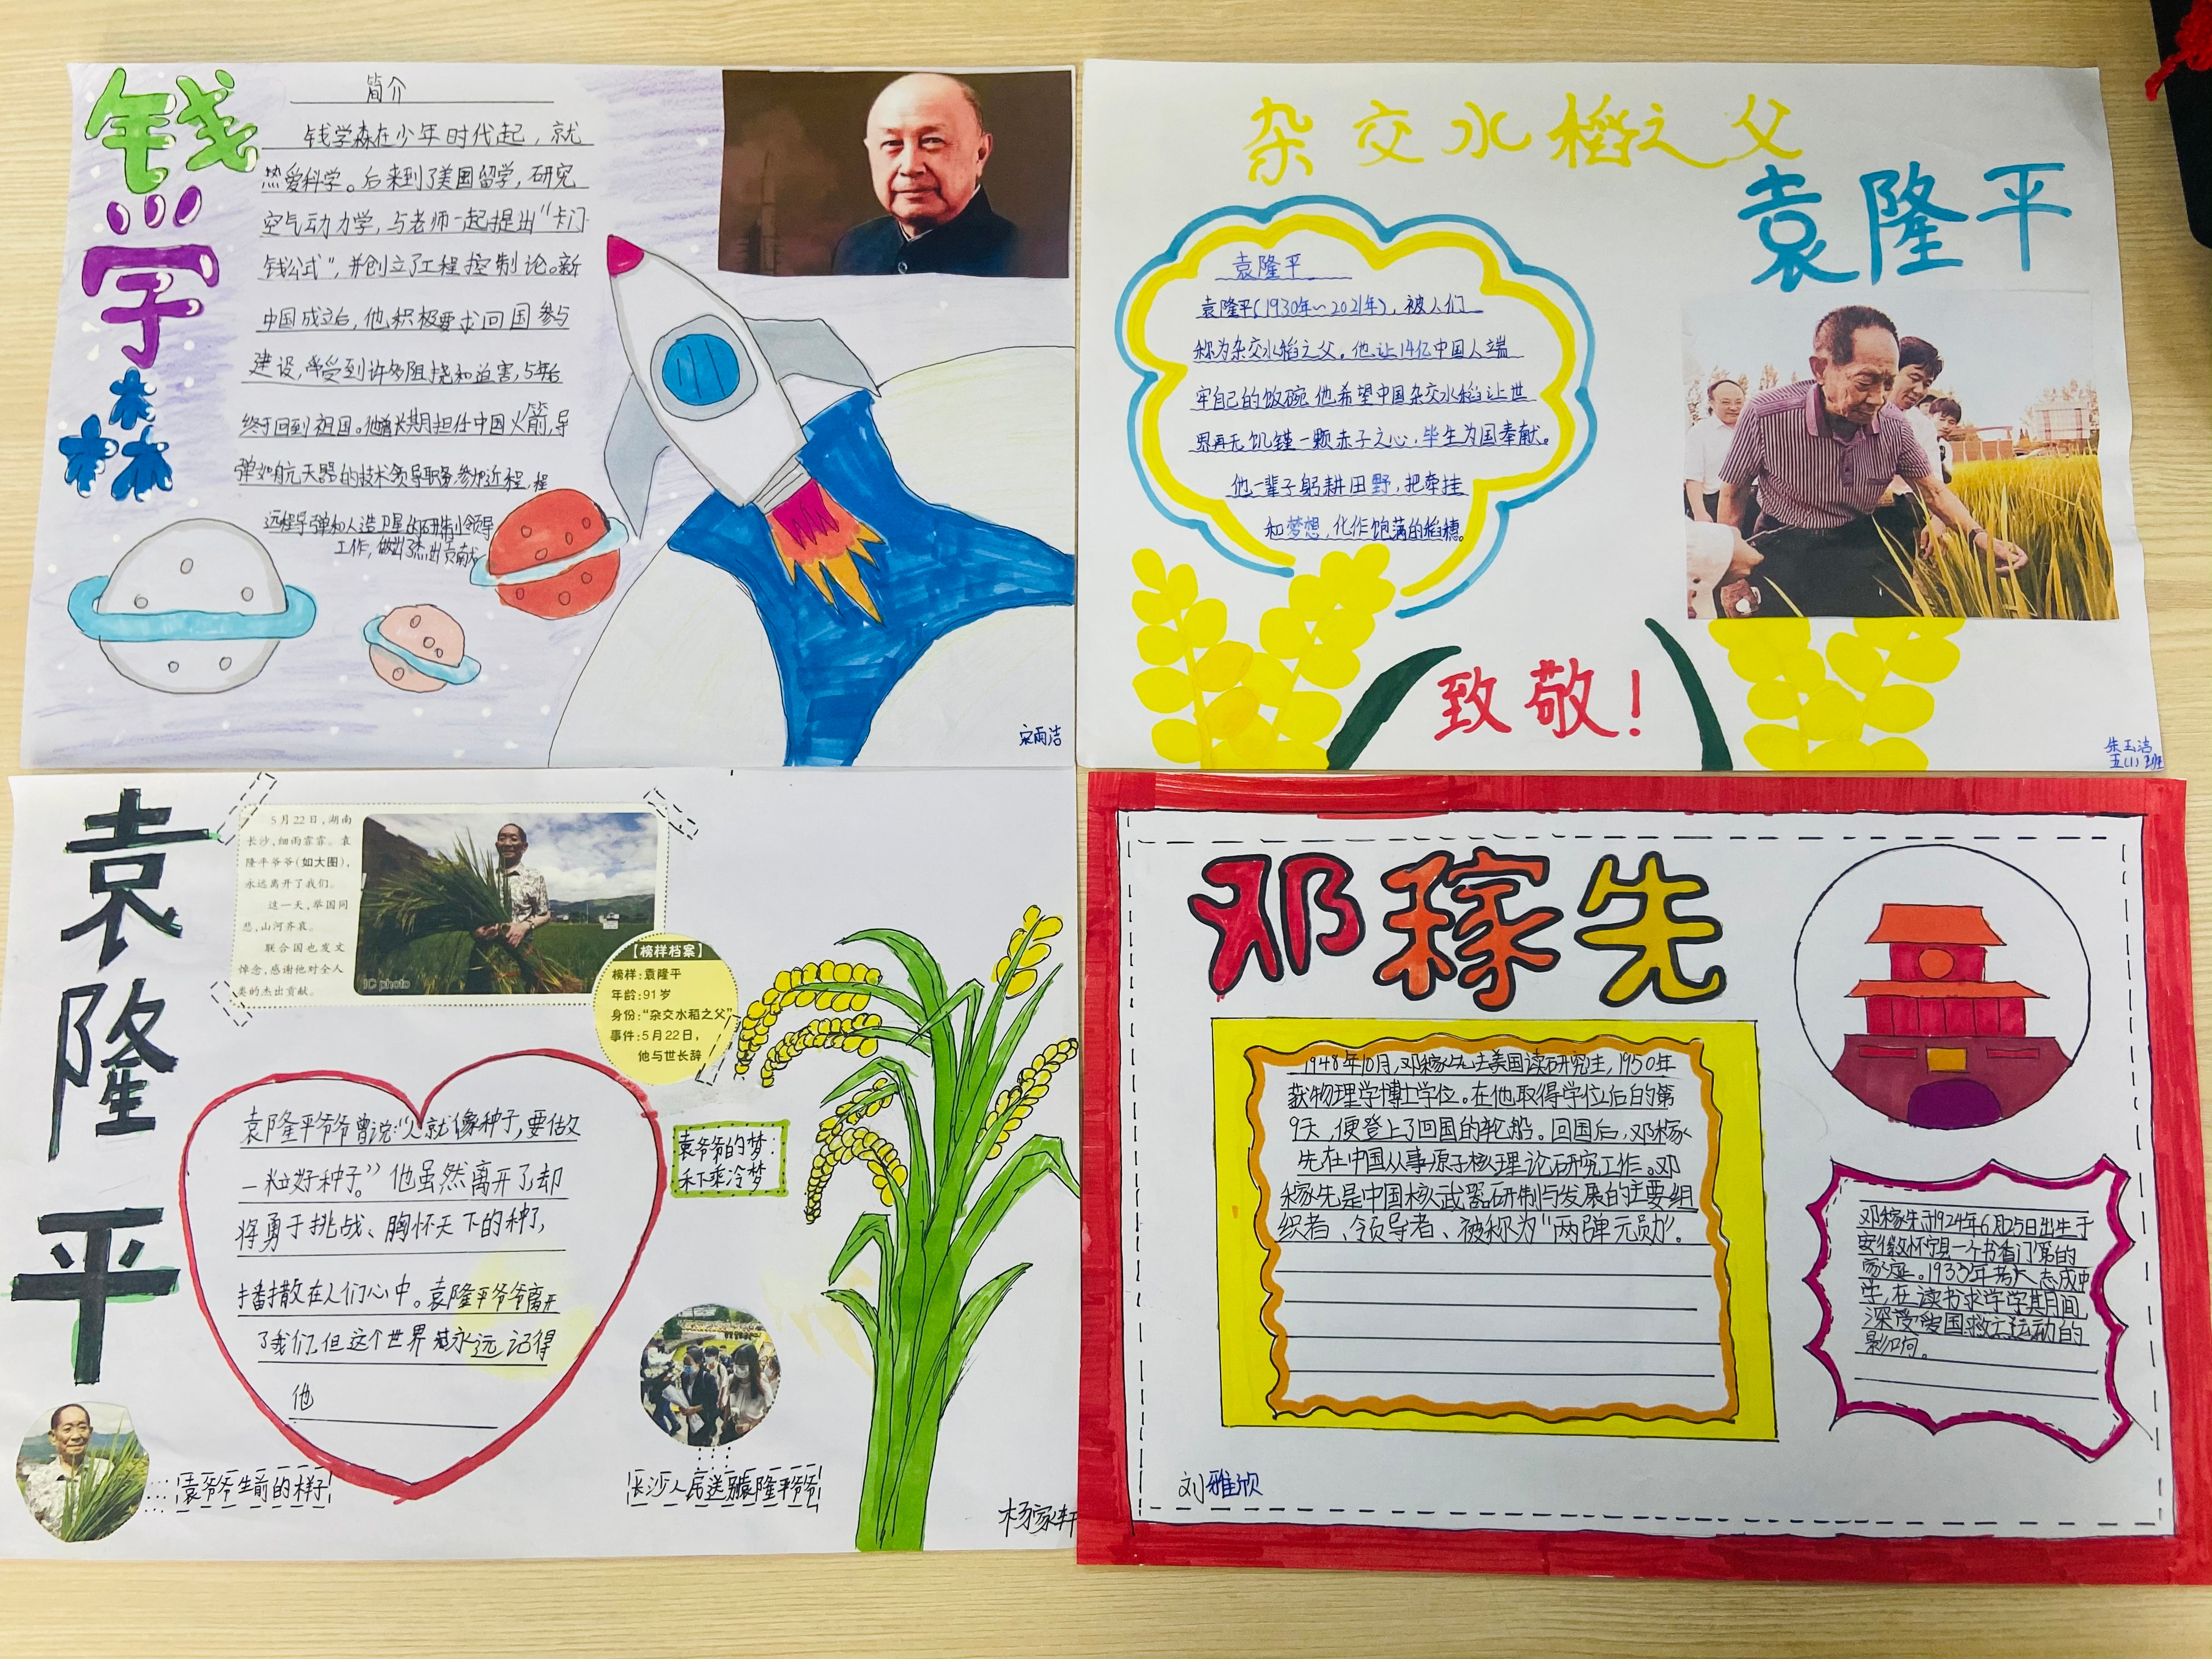 钱学森
简介
钱学森在少年时代起，就
热爱科学。后来到了美国留学，研究
空气动力学，与老师一起提出“卡门
钱公式”，并创立了工程控制论。新
中国成立后，他积极要求回国参与
建设，常受到许多阻挠和迫害，5年后
终于回到祖国。他曾长期担任中国火箭，导
弹和航天器的技术领导职务，参加近程，程
远程导弹和人造卫星的研制小领导
工作，做出了杰出贡献
宋雨洁
杂交水稻之父
袁隆平
袁隆平
袁隆平（1930年～2021年），被人们
称为杂交水稻之父。他让14亿中国人端
牢自己的饭碗，他希望中国杂交水稻让世
界再无饥馑一颗赤子之心，毕生为国奉献。
他一辈子躬耕田野，把牵挂
和梦想，化作饱满的稻穗。
致敬！
朱玉洁
五（1）班
袁隆平
5月22日，湖南
长沙，细雨霏霏。袁
隆平爷爷（如大图），
永远离开了我们。
这一天，举国同
悲，山河齐哀。
联合国也发文
悼念，感谢他对全人
类的杰出贡献。
IC photo
【榜样档案】
榜样：袁隆平
年龄：91岁
身份：“杂交水稻之父”
事件：5月22日，
他与世长辞
袁隆平爷爷曾说：“人就像种子，要做又
一粒好种子。”他虽然离开了却
将勇于挑战、胸怀天下的种子，
播撒在人们心中。袁隆平爷爷离开
了我们，但这个世界 永远记得
他
袁爷爷的梦：
禾下乘冷梦
袁爷爷生前的样子
长沙人民送别袁隆平爷爷
杨家轩
邓稼先
1948年10月，邓稼先去美国读研究生，1950年
获物理学博士学位。在他取得学位后的第
9天，便登上了回国的轮船。回国后，邓稼
先在中国从事原子核理论研究工作。邓
稼先是中国核武器研制与发展的主要组
织者、领导者、被称为“两弹元勋”。
邓稼先于1924年6月25日出生于
安徽怀宁县一个书香门第的
家庭。193 年考入志成中
学，在读书求学学其月间，
深受爱国救亡运动的
影响。
刘雅欣